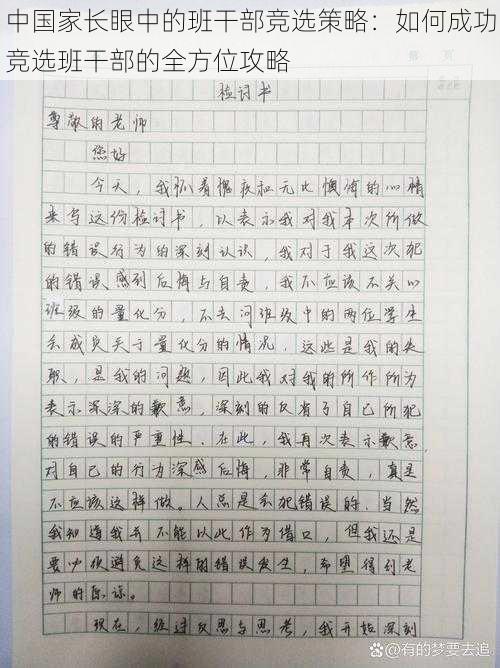 中国家长眼中的班干部竞选策略：如何成功
竞选班干部的全方位攻略
检讨书
尊敬的老师
您好
今天，我抱着愧疚和无比懊悔的心情
来写这份检讨书，以表示我对我本次所做
的错误行为的深刻认识，我对于我这次犯
的错误感到后悔与自责，我不应该不关心
班级的量化分，不去问班级中的两位学生
会成员关于量化分的情况，这些是我的失
职，是我的问题，因此我对我的所作所为
表示深深的歉意，深刻的反省了自己所犯
的错误的严重性，在此，我再次表示歉意，
对自己的行为深感后悔，非常自责，真是
不应该这样做。人总是会犯错误的，当然
我知道我并不能以此作为借口，但我还是
要功保避免这样的错误发生，希望得到老
师的原谅。
现在，经过反思与思考，我开始深刻
@有的梦要去追